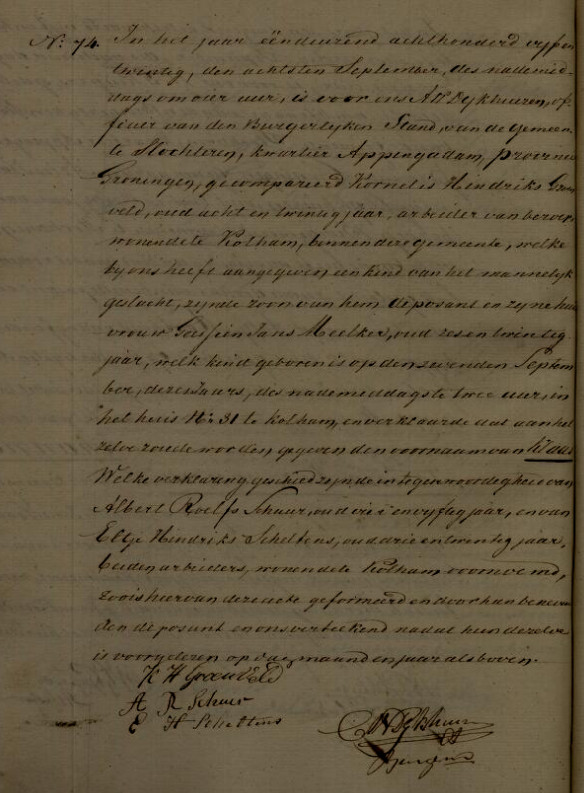 No: 74. In het jaar eenduizend achthonderd vyf en
twintig, den achtsten September, des namid-
dags om vier uur, is voor ons Dykhuizen, of-
ficier van den Burgerlyken Stand, van de Gemeen-
te Slochteren, kwartier Appingadam, provincie
Groningen, gecompareerd Kornelis Hendriks Groene
veld, oud acht en twintig jaar, arbeider van beroep
wonende te Kolham, binnen deze gemeente, welke
by ons heeft aangegeven een kind van het mannelyk
geslacht, zynde zoon van hem deposant en zyne huis
vrouw Jans Meelker, oud zes en twintig
jaar, welk kind geboren is op den zevenden Septem
ber, dezes Jaars, des nademiddags te twee uur, in
het huis No: 31 te Kolham, en verklaarde dat aan het
zelve zoude worden gegeven den voornaam van Klaas
Welke verklaring geschied zynde in tegenwoordigheid van
Albert Roelfs Schuur, oud vier en vyftig jaar, en van
Eltje Hendriks Scheltens, oud drie en twintig jaar,
beiden arbeiders, wonende te Kolham voornoemd,
zoo is hiervan deze acte geformeerd en door hun benevens
den deposant en ons verteekend nadat hun dezelve
is voorgelezen op dag, maand en jaar als boven.
K H Groenveld
A R Schuur
E H Scheltens
Dykhuizen